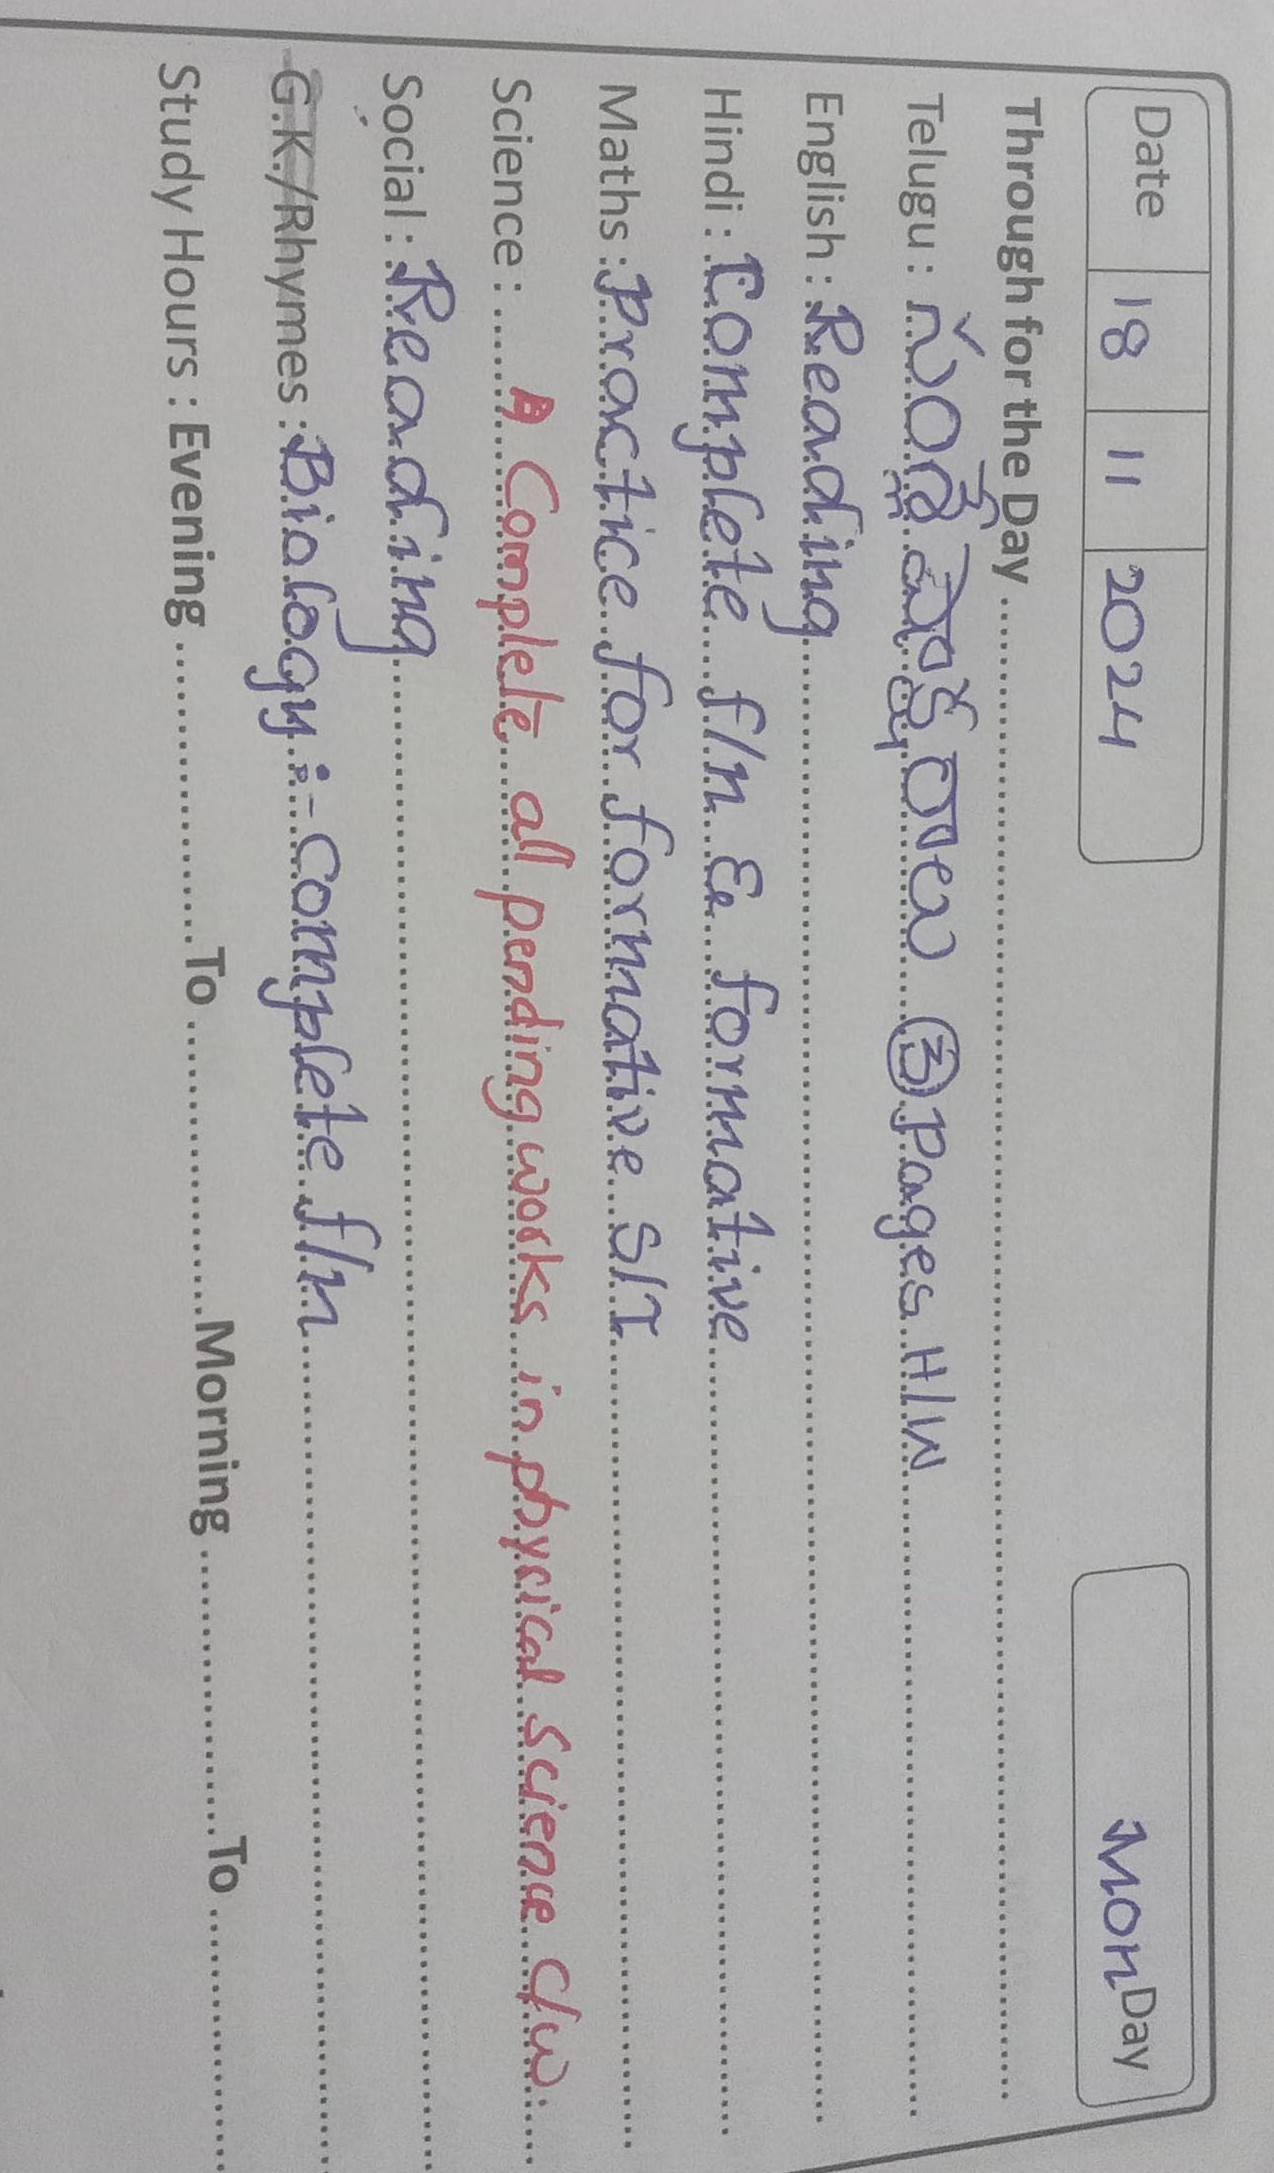 Date 18 11 2024 MonDay
Through for the Day
Telugu : 3 Pages H/W
English : Reading
Hindi : Complete f/n & formative
Maths : Practice for formative S/T
Science : Complete all pending works in physical science C/W.
Social : Reading
G.K./Rhymes : Biology :- Complete f/n
Study Hours : Evening To Morning To